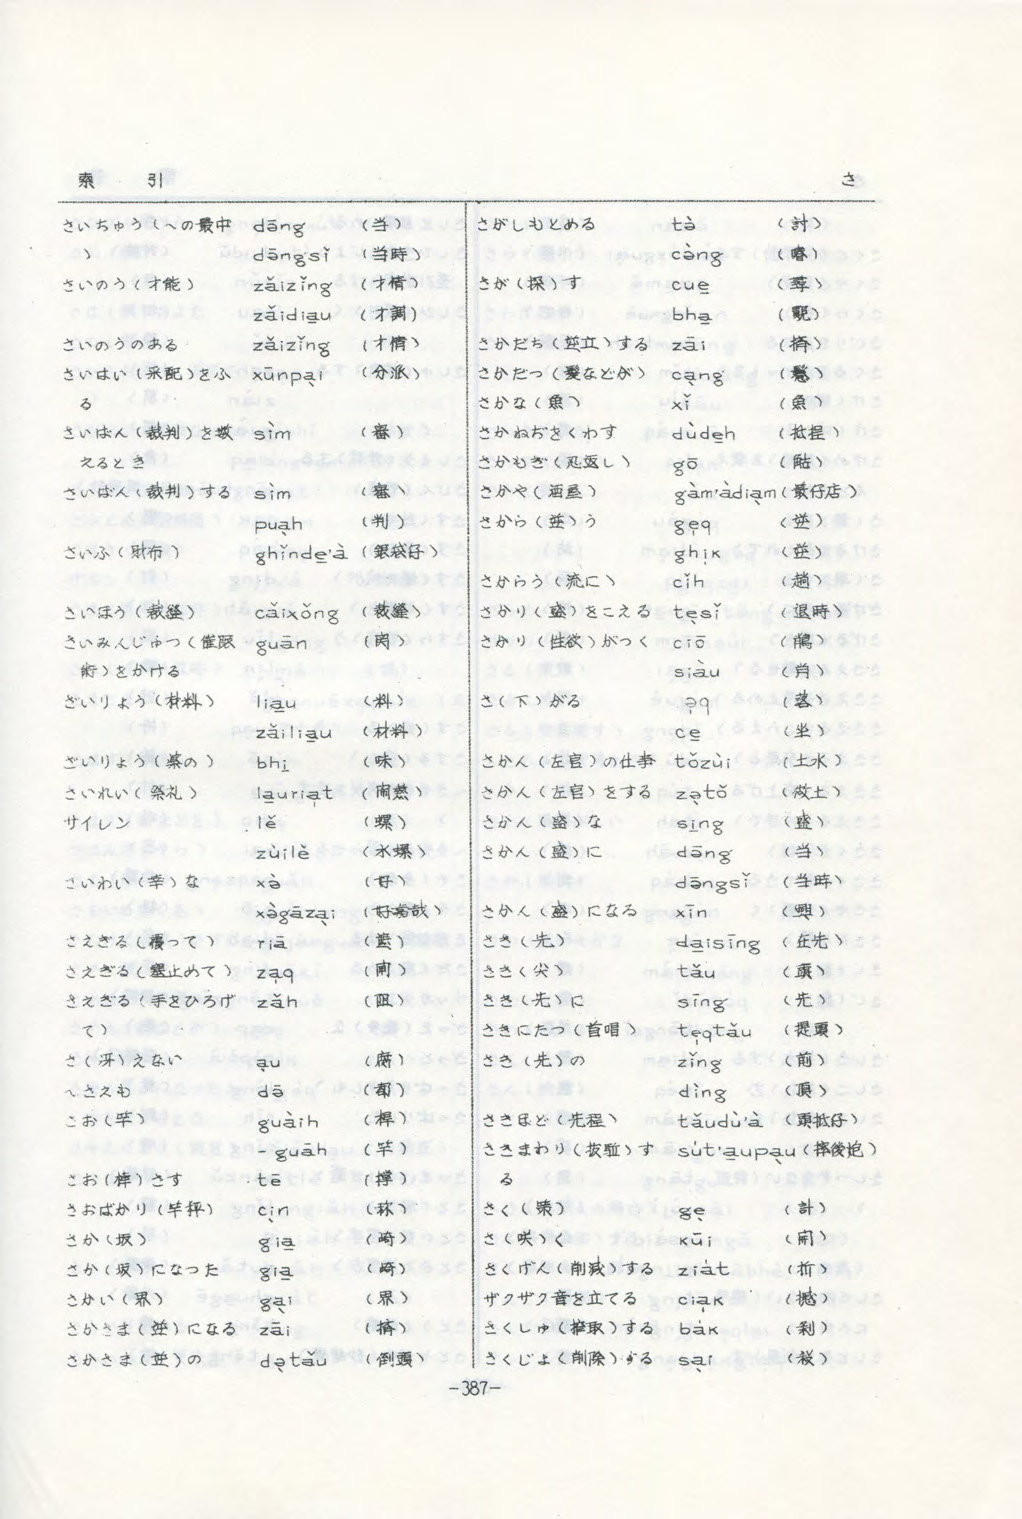 索 引
さ
さいちゅう(〜の最中 dāng (当)
) dāngsǐ (当時)
さいのう(才能) zǎizǐng (才情)
zǎidia̲u (才調)
さいのうのある zǎizǐng (才情)
さいはい(采配)をふ xūnpại (分派)
る
さいばん(裁判)を構 sìm (審)
えるとき
さいばん(裁判)する sìm (審)
puạh (判)
さいふ(財布) ghǐnde̲'à (銀袋仔)
さいほう(裁縫) cǎixǒng (裁縫)
さいみんじゅつ(催眠 guān
術)をかける
ざいりょう(材料) lia̲u (料)
zǎilia̲u (材料
ざいりょう(薬の) bhi̲ (味)
さいれい(祭礼) la̲uriạt (閙熱)
サイレン lě (螺)
zùilě (水螺)
さいわい(幸)な xə̀ (好)
xə̀gāzại (好哉)
さえぎる(覆って) riā
さえぎる(塞止めて) zạq (閘)
さえぎる(手をひろげ zǎh (阻)
て)
さ(冴)えない ạu
〜さえも də̄ (都)
こお(竿) guàih (桿)
-guāh (竿)
さお(棹)さす tē (撑)
さおばかり(竿秤) cịn (秤)
さか(坂) gia̲ (崎)
さか(坂)になった gia̲ (崎)
さかい(界) gại (界)
さかさま(逆)になる zāi
さかさま(逆)の də̣tǎu (倒頭)
さがしもとめる tə̀ (討)
càng
さが(探)す cue̲
bha̲
さかだち(逆立)する zāi
さかだつ(髪などが) cạng
さかな(魚) xǐ (魚)
さかねぢをくわす dùde̲h (抵捏)
さかむぎ(逆返し) gō
さかや(酒屋) gàm'àdiạm (𥴊仔店)
さから(逆)う gẹq (逆)
ghịk (逆)
さからう(流に) cǐh (趟)
さかり(盛)をこえる tẹsǐ (退時)
さかり(性欲)がつく ciō
siàu
さ(下)がる ə̣q (落)
ce̲ (坐)
さかん(左官)の仕事 tǒzùi (土水)
さかん(左官)をする zə̣tǒ (做土)
さかん(盛)な si̲ng (盛)
さかん(盛)に dāng (当)
dāngsǐ (当時)
さかん(盛)になる xīn (興)
さき(先) da̲isīng (在先)
さき(尖) tǎu (頭)
さき(先)に sīng (先)
さきにたつ(首唱) tẹqtǎu (提頭)
さき(先)の zǐng (前)
dìng (頂)
さきほど(先程) tǎudù'à (頭抵仔)
さきまわり(抜駈)す sụt'a̲upạu (捽後炮)
る
さく(策) gẹ (計)
さく(咲)く kūi (開)
さくげん(削減)する ziàt (折)
ザクザク音を立てる ciạk
さくしゅ(搾取)する bàk (剥)
さくじょ(削除)する sại
-387-